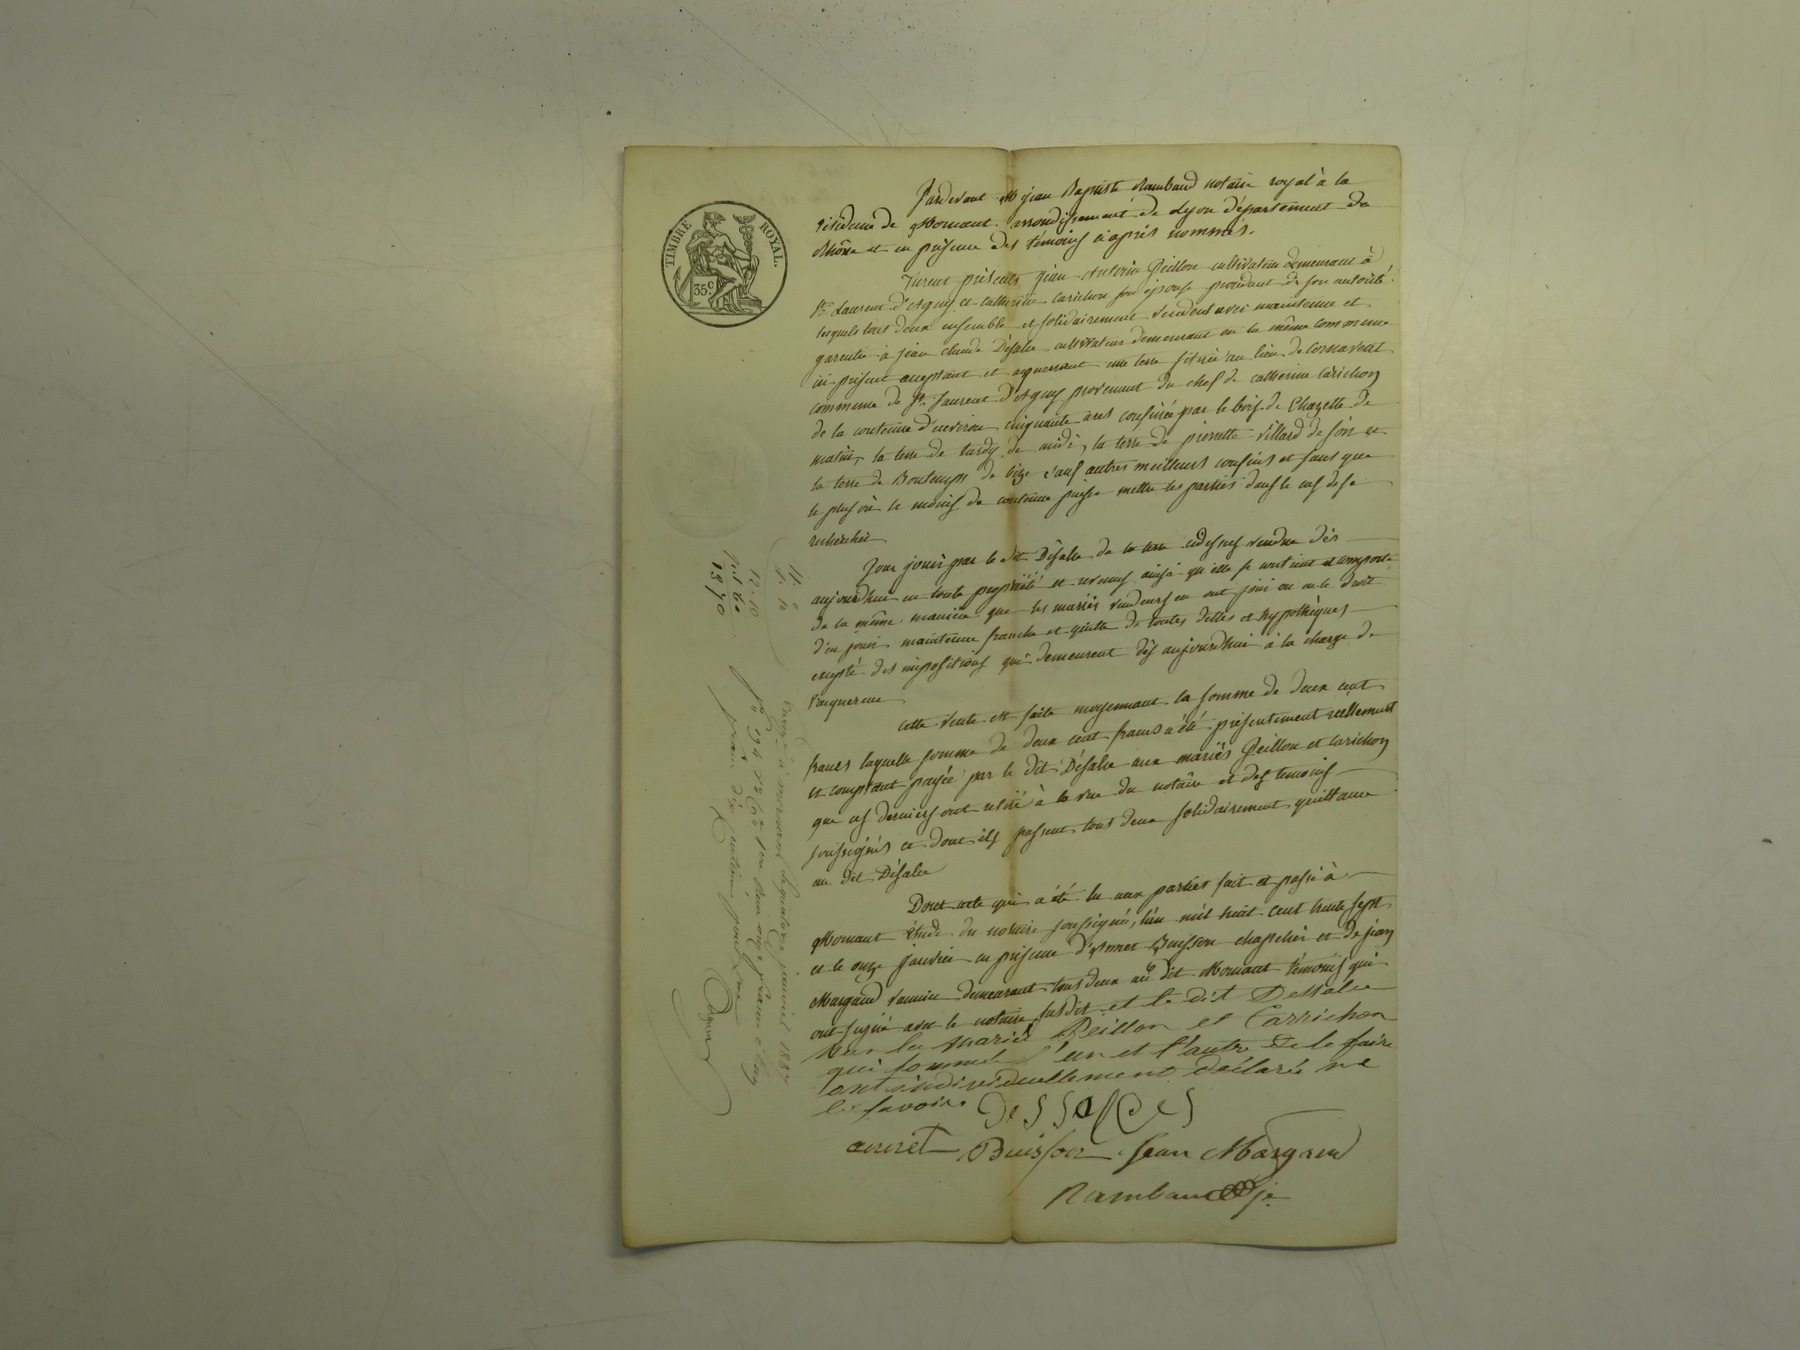 TIMBRE ROYAL.
35 C.
Pardevant Me jean Baptiste Rambaud notaire royal à la
résidence de Mornant arrondissement de Lyon département du
Rhône et en présence des témoins ci après nommés.
Furent présents jean Antoine Peillon cultivateur demeurant à
St. Laurent d'Agny et catherine carichon son épouse procédant de son autorité
lesquels tous deux ensemble et solidairement vendent avec maintenue et
garentie à jean claude Désalse cultivateur demeurant en la même commune
ici présent acceptant et aquerrant une terre située au lieu de Cornavent
commune de St. Laurent d'Agny provenant du chef de catherine Carichon
de la contenue d'environ cinquante ares confinée par le bois de Chazelle de
matin, la terre de tardy de midi, la terre de pierrette Villard de soir et
la terre de Bontemps de bize sauf autres meilleurs confins et sans que
le plus ou le moins de contenue puisse mettre les parties dans le cas de se
rechercher
Pour jouir par le dit Désalse de la terre cidessus vendue dès
aujourdhui en toute propriété et revenus ainsi qu'elle se contient et comporte
de la même manière que les mariés vendeurs en ont joui ou eu le droit
d'en jouir maintenue franche et quitte de toutes dettes et hypothèques
excepté des impositions qui demeurent dès aujourdhui à la charge de
l'aquereur
cette vente est faite moyennant la somme de deux cent
francs laquelle somme de deux cent francs a été présentement réellement
et comptant payée par le dit Désalse aux mariés Peillon et Carichon
que ces derniers ont retiré à la vue du notaire et des temoins
soussignés et dont ils passent tous deux solidairement quittance
au dit Désalse
Dont acte qui a été lu aux parties fait et passé à
Mornant étude du notaire soussigné, l'an mil huit cent trente sept
et le onze janvier en présence d'Annet Buisson chapelier et de jean
Margand vannier demeurant tous deux au dit Mornant témoins qui
ont signé avec le notaire susdit et le dit Dessalse
non les mariés Peillon et Carrichon
qui sommés l'un et l'autre de le faire
ont individuellement déclaré ne
le savoir.
Dessalses
annet Buisson Jean Margand
Rambaud
11
1. 10
12.10
13 70
Enregistré à mornant le quatorze janvier 1837
fo 194 reçu deux onze francs